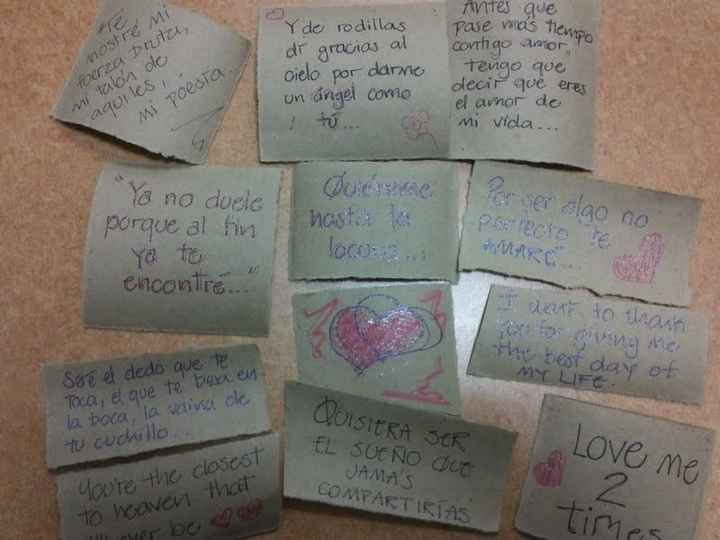 "Te
mostré mi
fuerza bruta,
mi talón de
aquiles,
mi poesía...
Y de rodillas
di gracias al
cielo por darme
un ángel como
tú...
Antes que
pase más tiempo
contigo amor,
tengo que
decir que eres
el amor de
mi vida...
"Ya no duele
porque al fin
ya te
encontré..."
Quiéreme
hasta la
locura...
Por ser algo no
perfecto te
AMARÉ...
I want to thank
you for giving me
the best day of
MY LIFE.
Seré el dedo que te
toca, el que te besa en
la boca, la vaina de
tu cuchillo...
QUISIERA SER
EL SUEÑO QUE
JAMÁS
COMPARTIRÍAS
You're the closest
to heaven that
ever be
Love me
2
times